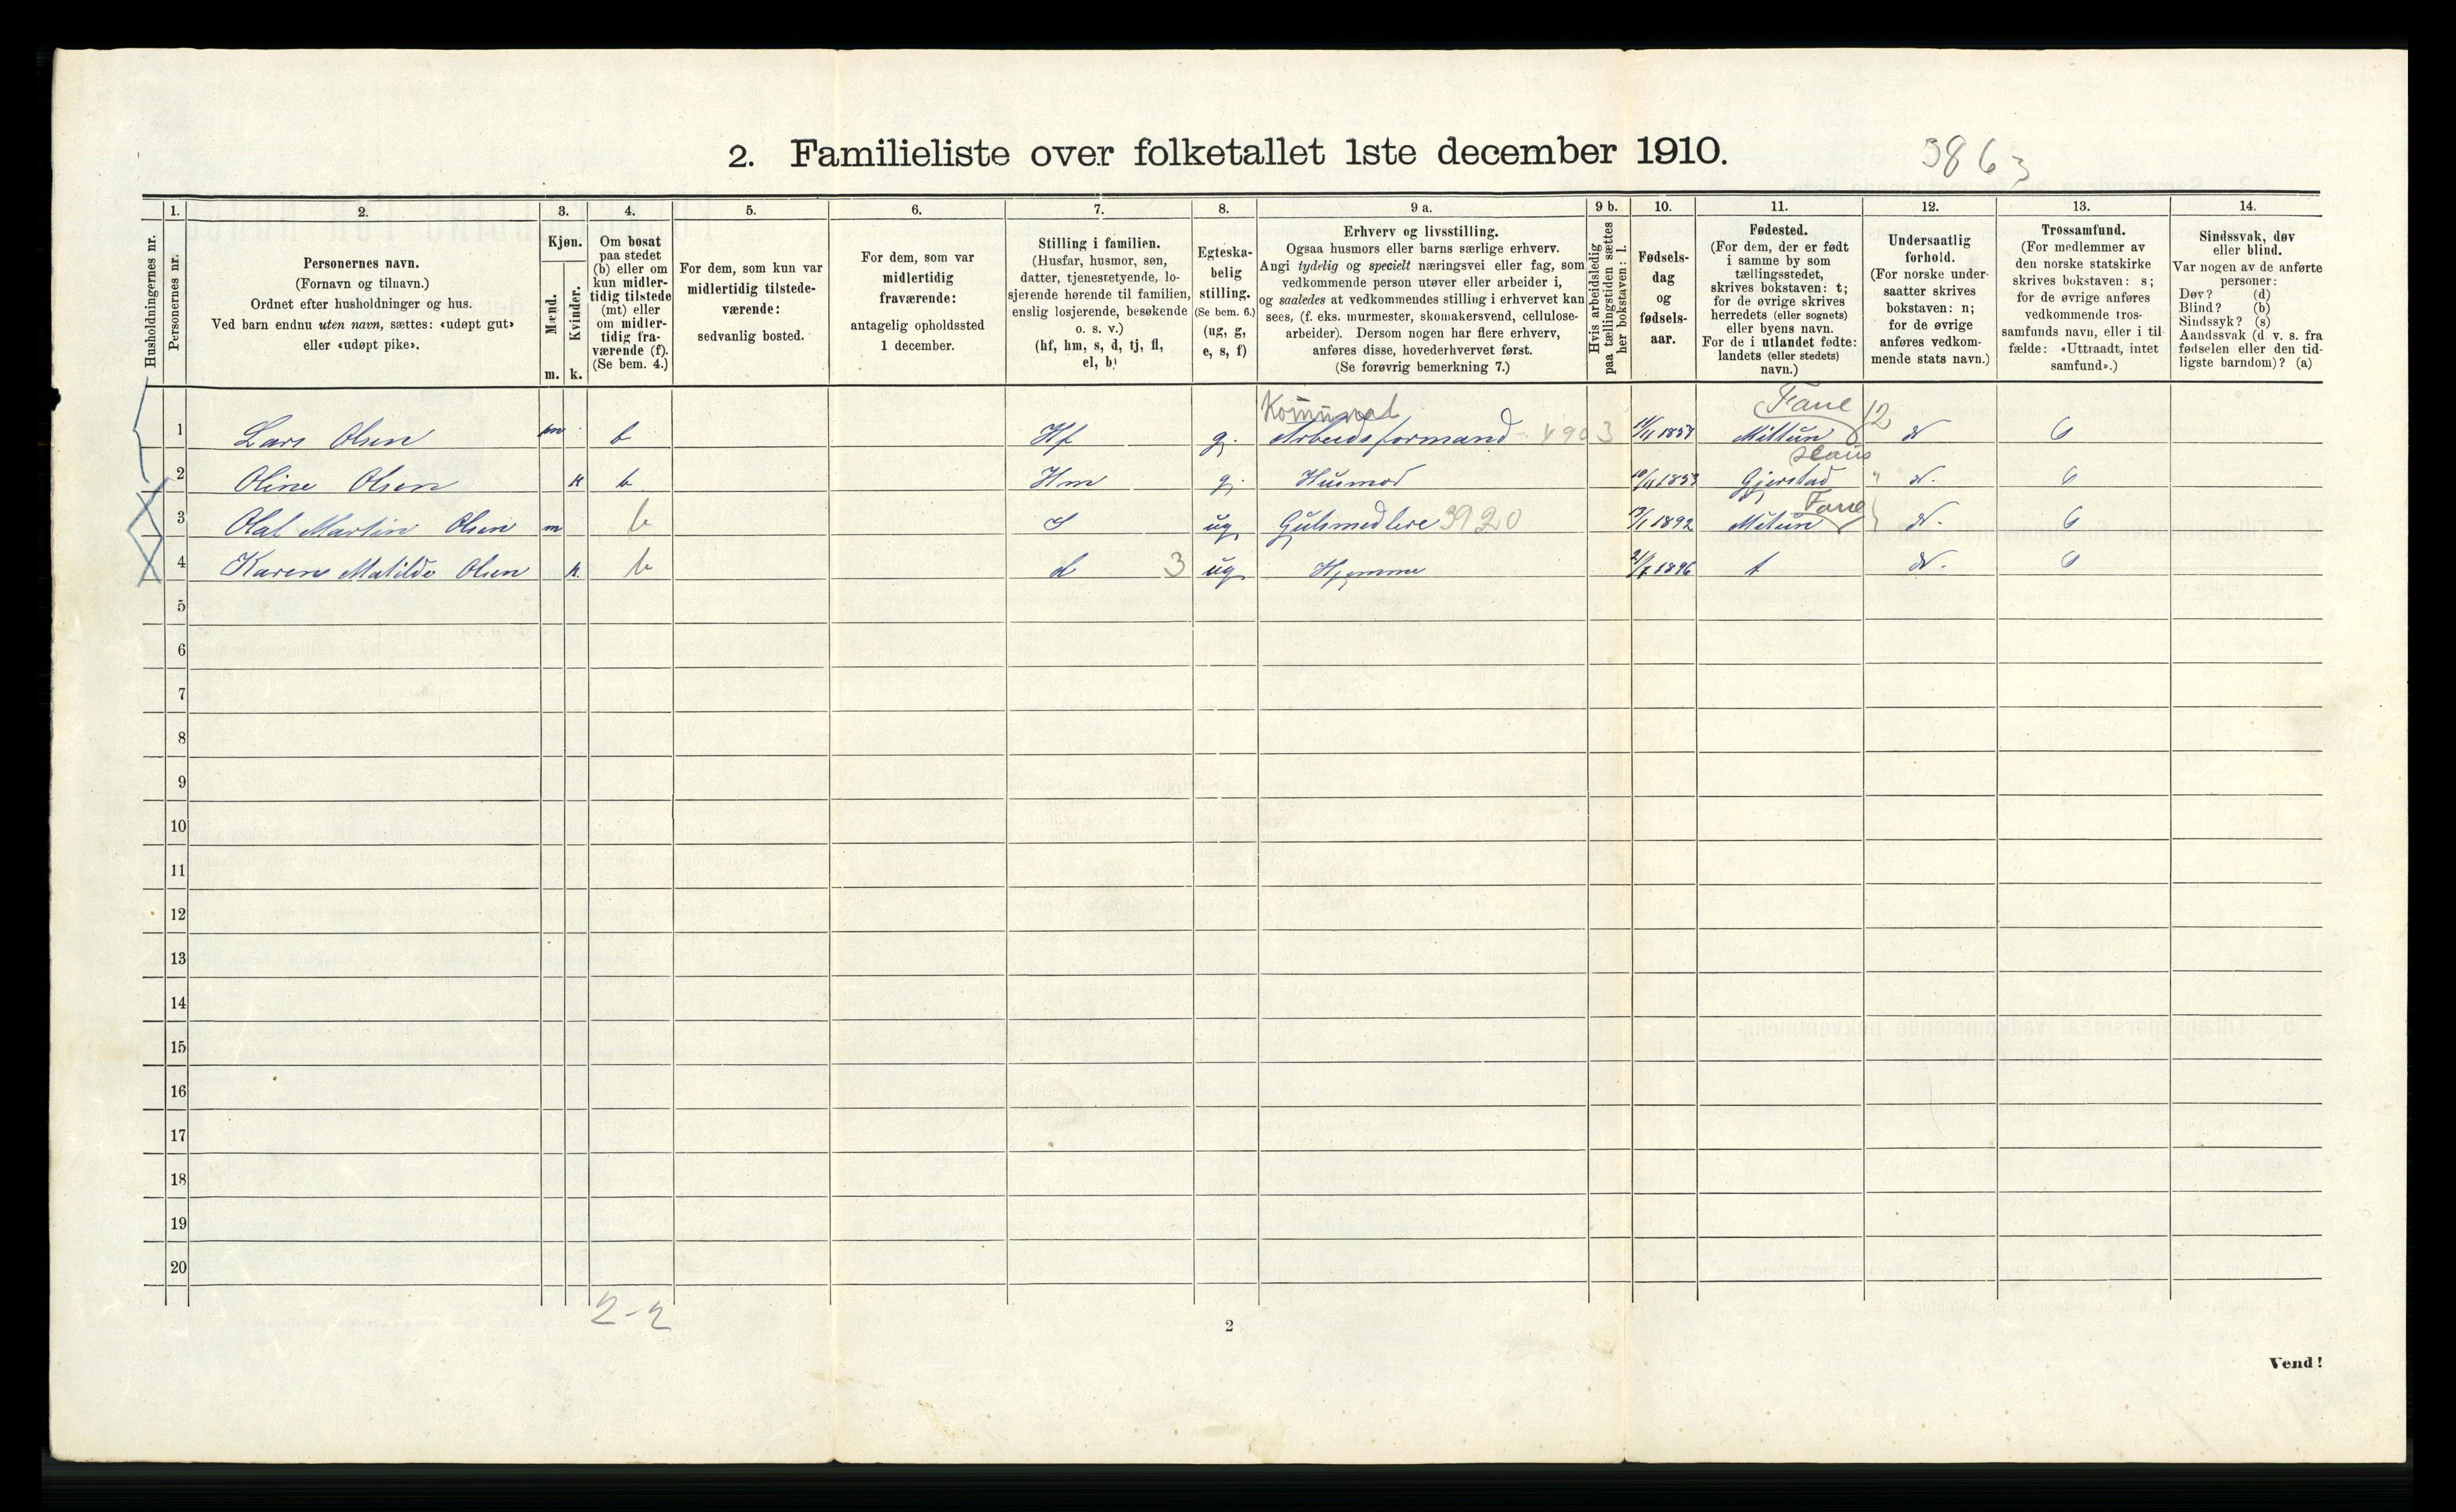 2. Familieliste over folketallet 1ste december 1910.
3863
1. 2. 3. 4. 5. 6. 7. 8. 9 a. 9 b. 10. 11. 12. 13. 14.
Husholdningernes nr.
Personernes nr.
Personernes navn.
(Fornavn og tilnavn.)
Ordnet efter husholdninger og hus.
Ved barn endnu uten navn, sættes: «udøpt gut»
eller «udøpt pike».
Kjøn.
Mænd.
Kvinder.
m. k.
Om bosat
paa stedet
(b) eller om
kun midler-
tidig tilstede
(mt) eller
om midler-
tidig fra-
værende (f).
(Se bem. 4.)
For dem, som kun var
midlertidig tilstede-
værende:
sedvanlig bosted.
For dem, som var
midlertidig
fraværende:
antagelig opholdssted
1 december.
Stilling i familien.
(Husfar, husmor, søn,
datter, tjenestetyende, lo-
sjerende hørende til familien,
enslig losjerende, besøkende
o. s. v.)
(hf, hm, s, d, tj, fl,
el, b)
Egteska-
belig
stilling.
(Se bem. 6.)
(ug, g,
e, s, f)
Erhverv og livsstilling.
Ogsaa husmors eller barns særlige erhverv.
Angi tydelig og specielt næringsvei eller fag, som
vedkommende person utøver eller arbeider i,
og saaledes at vedkommendes stilling i erhvervet kan
sees, (f. eks. murmester, skomakersvend, cellulose-
arbeider). Dersom nogen har flere erhverv,
anføres disse, hovederhvervet først.
(Se forøvrig bemerkning 7.)
Hvis arbeidsledig
paa tællingstiden sættes
her bokstaven: l.
Fødsels-
dag
og
fødsels-
aar.
Fødested.
(For dem, der er født
i samme by som
tællingsstedet,
skrives bokstaven: t;
for de øvrige skrives
herredets (eller sognets)
eller byens navn.
For de i utlandet fødte:
landets (eller stedets)
navn.)
Undersaatlig
forhold.
(For norske under-
saatter skrives
bokstaven: n;
for de øvrige
anføres vedkom-
mende stats navn.)
Trossamfund.
(For medlemmer av
den norske statskirke
skrives bokstaven: s;
for de øvrige anføres
vedkommende tros-
samfunds navn, eller i til-
fælde: «Uttraadt, intet
samfund».)
Sindssvak, døv
eller blind.
Var nogen av de anførte
personer:
Døv? (d)
Blind? (b)
Sindssyk? (s)
Aandssvak (d. v. s. fra
fødselen eller den tid-
ligste barndom)? (a)
Kommunal Fane 12
1 Lars Olsen m b Hf g. Arbeidsformand 4903 Mittun N
Haus
2 Oline Olsen k b Hm g. Husmod Gjerstad " N.
Fane
3 Olaf Martin Olsen m b S ug Gulsmedlere 3920 1892 Mitun N.
4 Karen Matilde Olsen k. b d 3 ug Hjemme 1896 t N.
5
6
7
8
9
10
11
12
13
14
15
16
17
18
19
20
2-2
2
Vend!